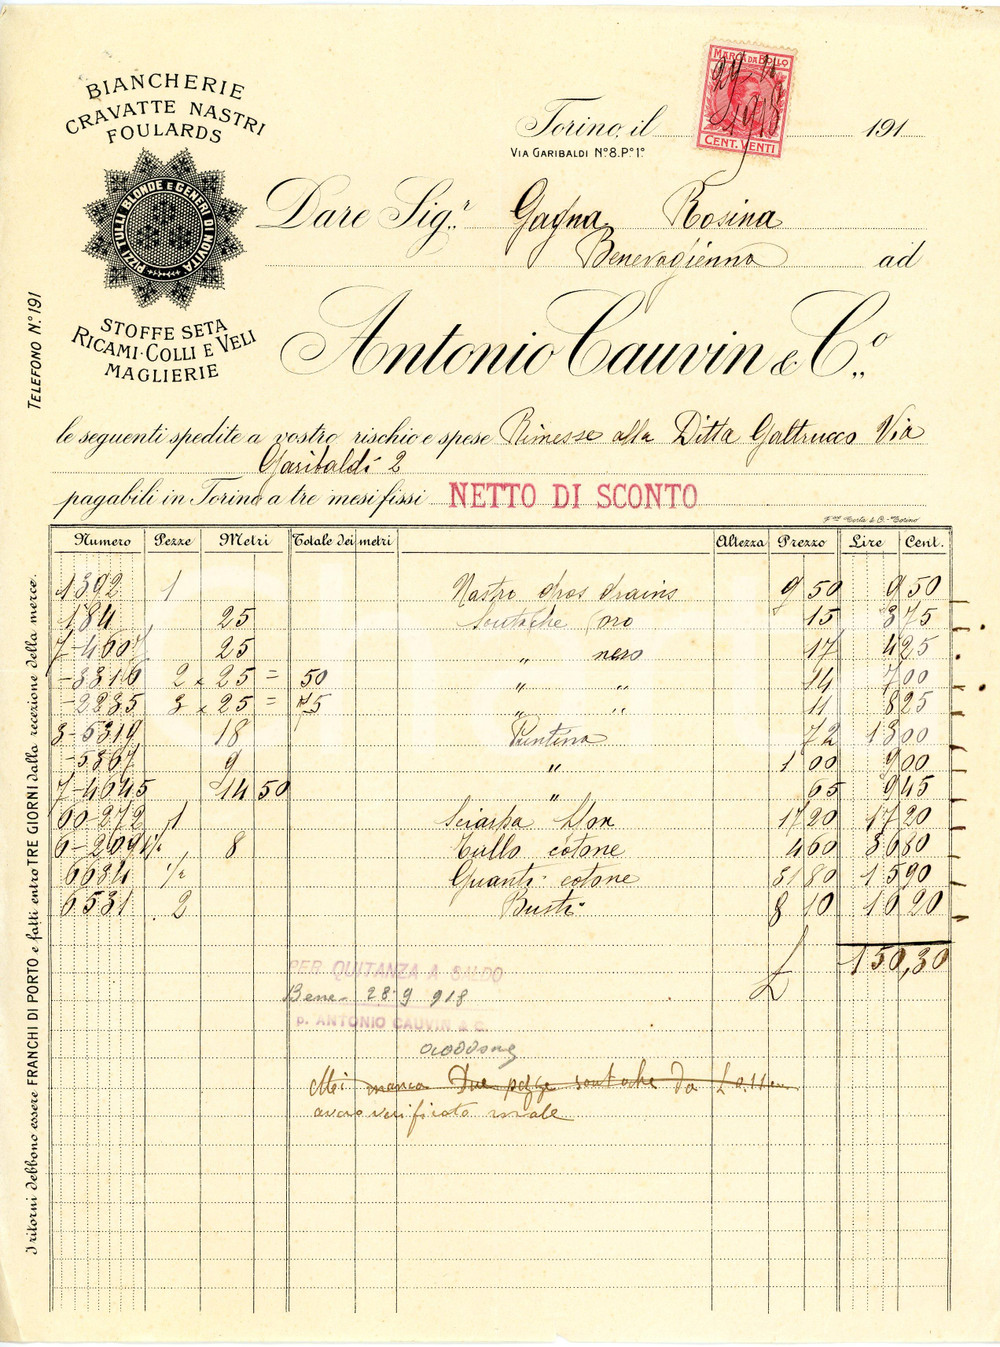 BIANCHERIE
CRAVATTE NASTRI
FOULARDS
PIZZI TULLI BLONDE E GENERI DI NOVITÀ
STOFFE SETA
RICAMI·COLLI E VELI
MAGLIERIE
TELEFONO N.º 191
MARCA DA BOLLO
CENT. VENTI
1918
Torino, il 191
VIA GARIBALDI Nº 8. P.º 1º
Dare Sig.r Gagna Rosina
Benevagienna ad
Antonio Cauvin & C.o
le seguenti spedite a vostro rischio e spese Rimesse alla Ditta Galtrucco Via
Garibaldi 2
pagabili in Torino a tre mesi fissi NETTO DI SCONTO
Numero Pezze Metri Totale dei metri Altezza Prezzo Lire Cent.
1392 1 Nastro gros drains 9 50 9 50
184 25 Soutache oro 15 3 75
7-4607 25 " nero 17 4 25
-3316 2 x 25 = 50 " " 14 7 00
-2235 3 x 25 = 75 " " 11 8 25
3-5319 18 Puntina 72 13 00
-5367 9 " 1 00 9 00
7-4645 14 50 " 65 9 45
60-272 1 Sciarpa 17 20 17 20
6-2091 8 Tullo cotone 4 60 36 80
6684 1/2 Guanti cotone 31 80 15 90
6531 2 Busti 8 10 16 20
£ 150,30
PER QUITANZA A SALDO
Bene - 28-9 918
p. ANTONIO CAUVIN & C.
Mi manca Due pezze soutache da £ 0.11
avevo verificato male
I ritorni debbono essere FRANCHI DI PORTO e fatti entro TRE GIORNI dalla recezione della merce.